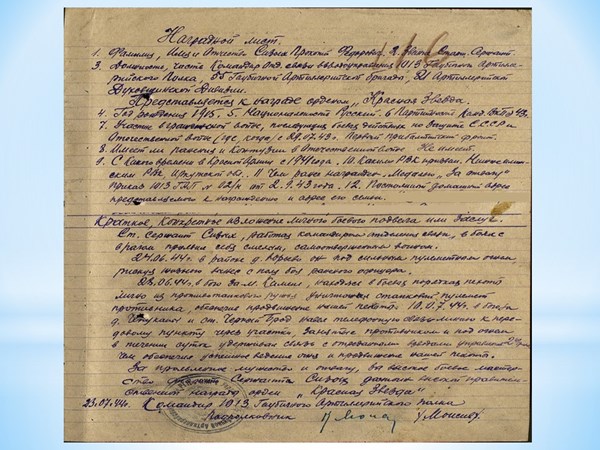 Наградной лист.
1. Фамилия, Имя и Отчество Сивак Прокоп Федорович 2. Звание Старш. Сержант
3. Должность, часть Командир отд. связи взвода управления 1013 Гаубичн. Артилле-
рийского Полка, 55 Гаубичной Артиллерийской бригады, 21 Артиллерийской
Духовщинской Дивизии.
Представляется к награде орденом „Красная Звезда".
4. Год рождения 1915, 5. Национальность Русский 6. Партийность Канд. ВКП(б) 43.
7. Участие в гражданской войне, последующих боевых действиях по защите СССР и
Отечественной войне (где, когда) с 28.07.43. Первый Прибалтийский фронт.
8. Имеет ли ранения и контузии в Отечественной войне Не имеет.
9. С какого времени в Красной Армии с 1941 года, 10. Каким РВК призван,
ским РВК Иркутской обл. 11 Чем ранее награжден, Медалью „За отвагу"
приказ 1013 ГАП № 02/н от 2.9.43 года. 12. Постоянный домашний адрес
представляемого к награждению и адрес его семьи.
Краткое, конкретное изложение личного боевого подвига или заслуг.
Ст. Сержант Сивак, работая командиром отделения связи, в боях
с врагом проявил себя смелым, самоотверженным воином.
24.06.44г. в районе д. он под сильным пулеметным огнем,
рискуя жизнью вынес с поля боя раненого офицера.
28.06.44г. в бою за м. Камень, находясь в боевых порядках пехоты
лично из противотанкового ружья уничтожил станковый пулемет
противника, обеспечив продвижение нашей пехоты. 10.07.44г. в бою за
д. и ст. тянул телефонную связь лично к пере-
довому пункту через участок, занятый противником и под огнем
в течении суток удерживал связь с
Чем обеспечил успешное ведение огня и продвижение нашей пехоты.
За проявленное мужество и отвагу, за высокое боевое мастер-
ство Сержант Сивак достоин высокой правитель-
ственной награды орден „Красная Звезда"
23.07.44г. Командир 1013 Гаубичного Артиллерийского полка
Подполковник /Моисюк/